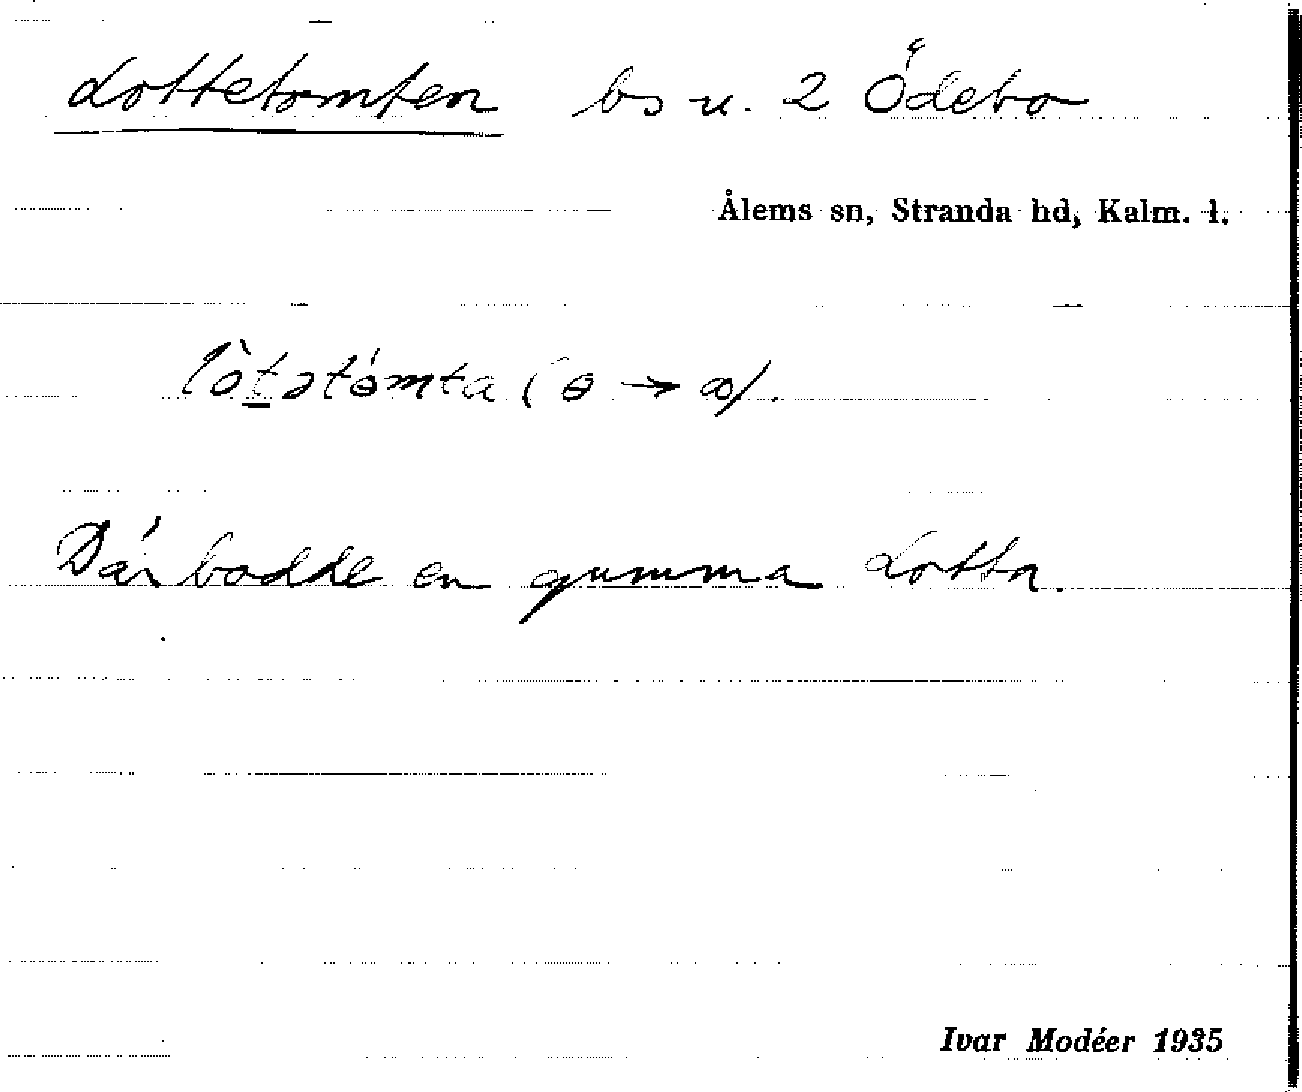 Lottetomten bs u. 2 Ödebo
Ålems sn, Stranda hd, Kalm. l.
lòt̲ətɵ́mta (ɵ → ꝏ).
Där bodde en gumma Lotta.
Ivar Modéer 1935